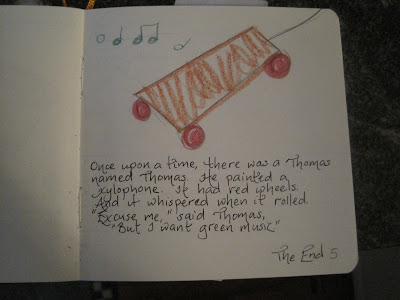 Once upon a time, there was a Thomas
named Thomas. He painted a
xylophone. It had red wheels.
And it whispered when it rolled.
"Excuse me," said Thomas,
"But I want green music"
The End 5